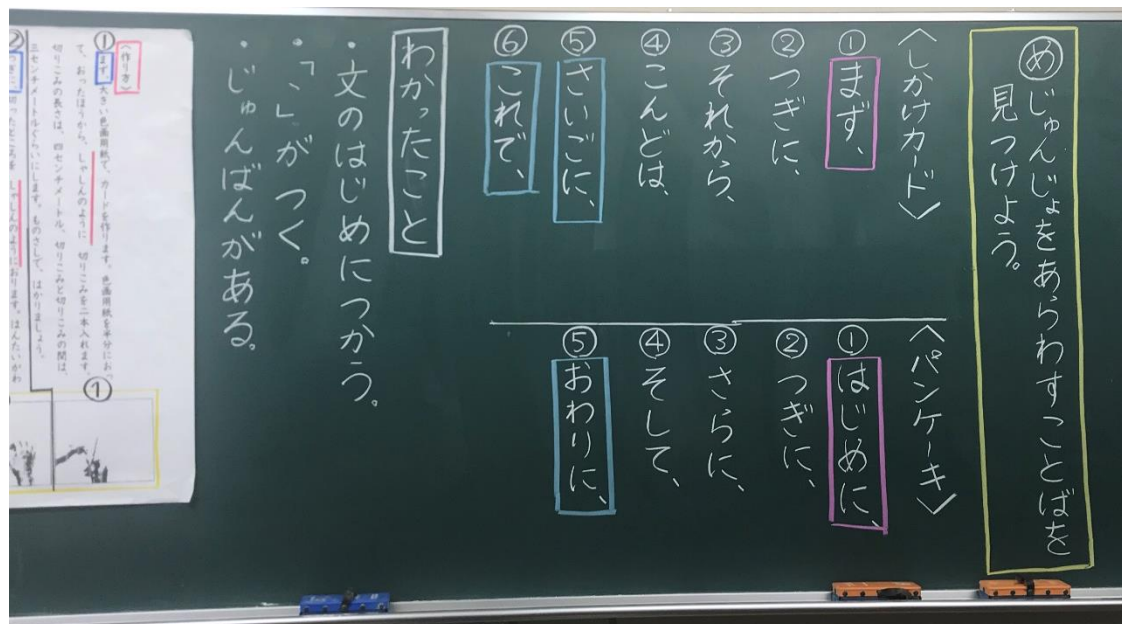 め じゅんじょをあらわすことばを
見つけよう。
〈しかけカード〉
① まず、
② つぎに、
③ それから、
④ こんどは、
⑤ さいごに、
⑥ これで、
〈パンケーキ〉
① はじめに、
② つぎに、
③ さらに、
④ そして、
⑤ おわりに、
わかったこと
・文のはじめにつかう。
・「、」がつく。
・じゅんばんがある。
〈作り方〉
① まず、大きい色画用紙で、カードを作ります。色画用紙を半分におっ
て、おったほうから、しゃしんのように、切りこみを二本入れます。
切りこみの長さは、四センチメートル、切りこみと切りこみの間は、
三センチメートルぐらいにします。ものさしで、はかりましょう。
② つぎに、切ったところを、しゃしんのようにおります。はんたいがわ
①